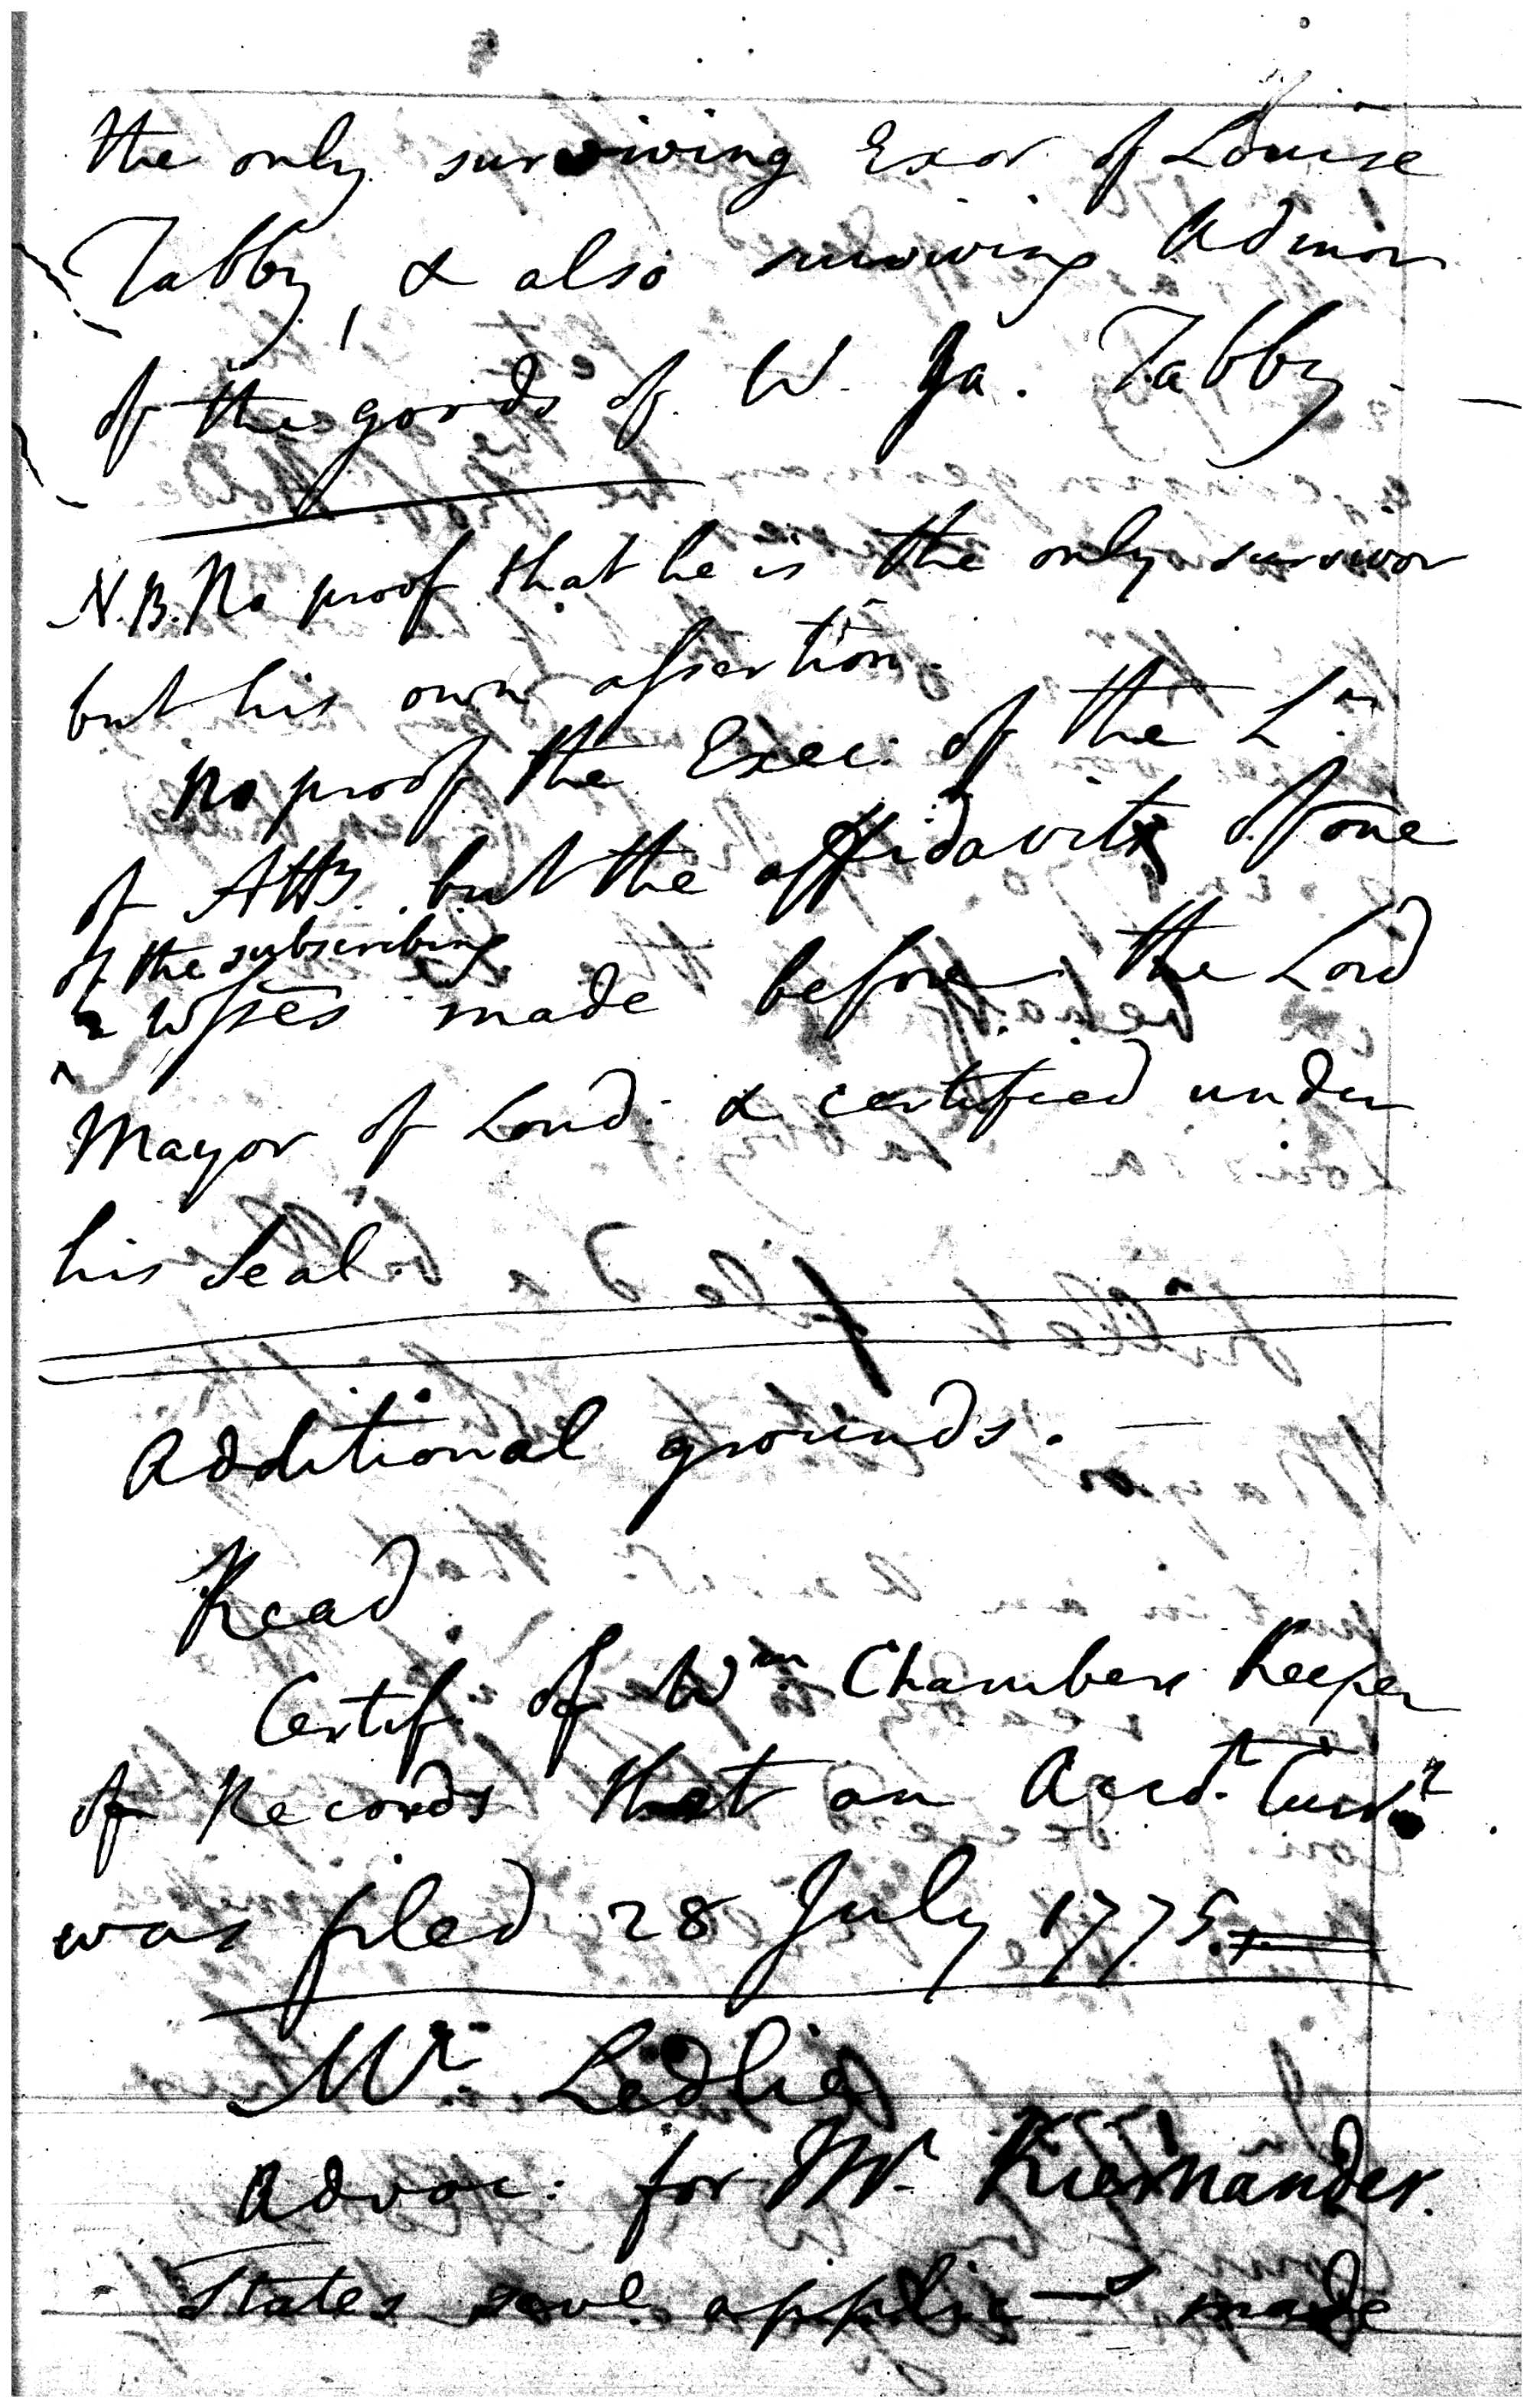 the only surviving Exor of Louise
Tabby, & also surviving Admor
of the goods of W. Ja. Tabby —
N.B. No proof that he is the only survivor
but his own assertion.
No proof the Exec: of the Lr
of Atty but the affidavit of one
of the subscribing
2 Wsses made before the Lord
Mayor of Lond: & certified under
his Seal.
Additional grounds. —
Read
Certif. of Wm Chambers Keeper
of Records that an Acct Curr
was filed 28 July 1775.
Mr. Ledlie
Advoc: for Mr. Kiernander.
States sevl applic—s made